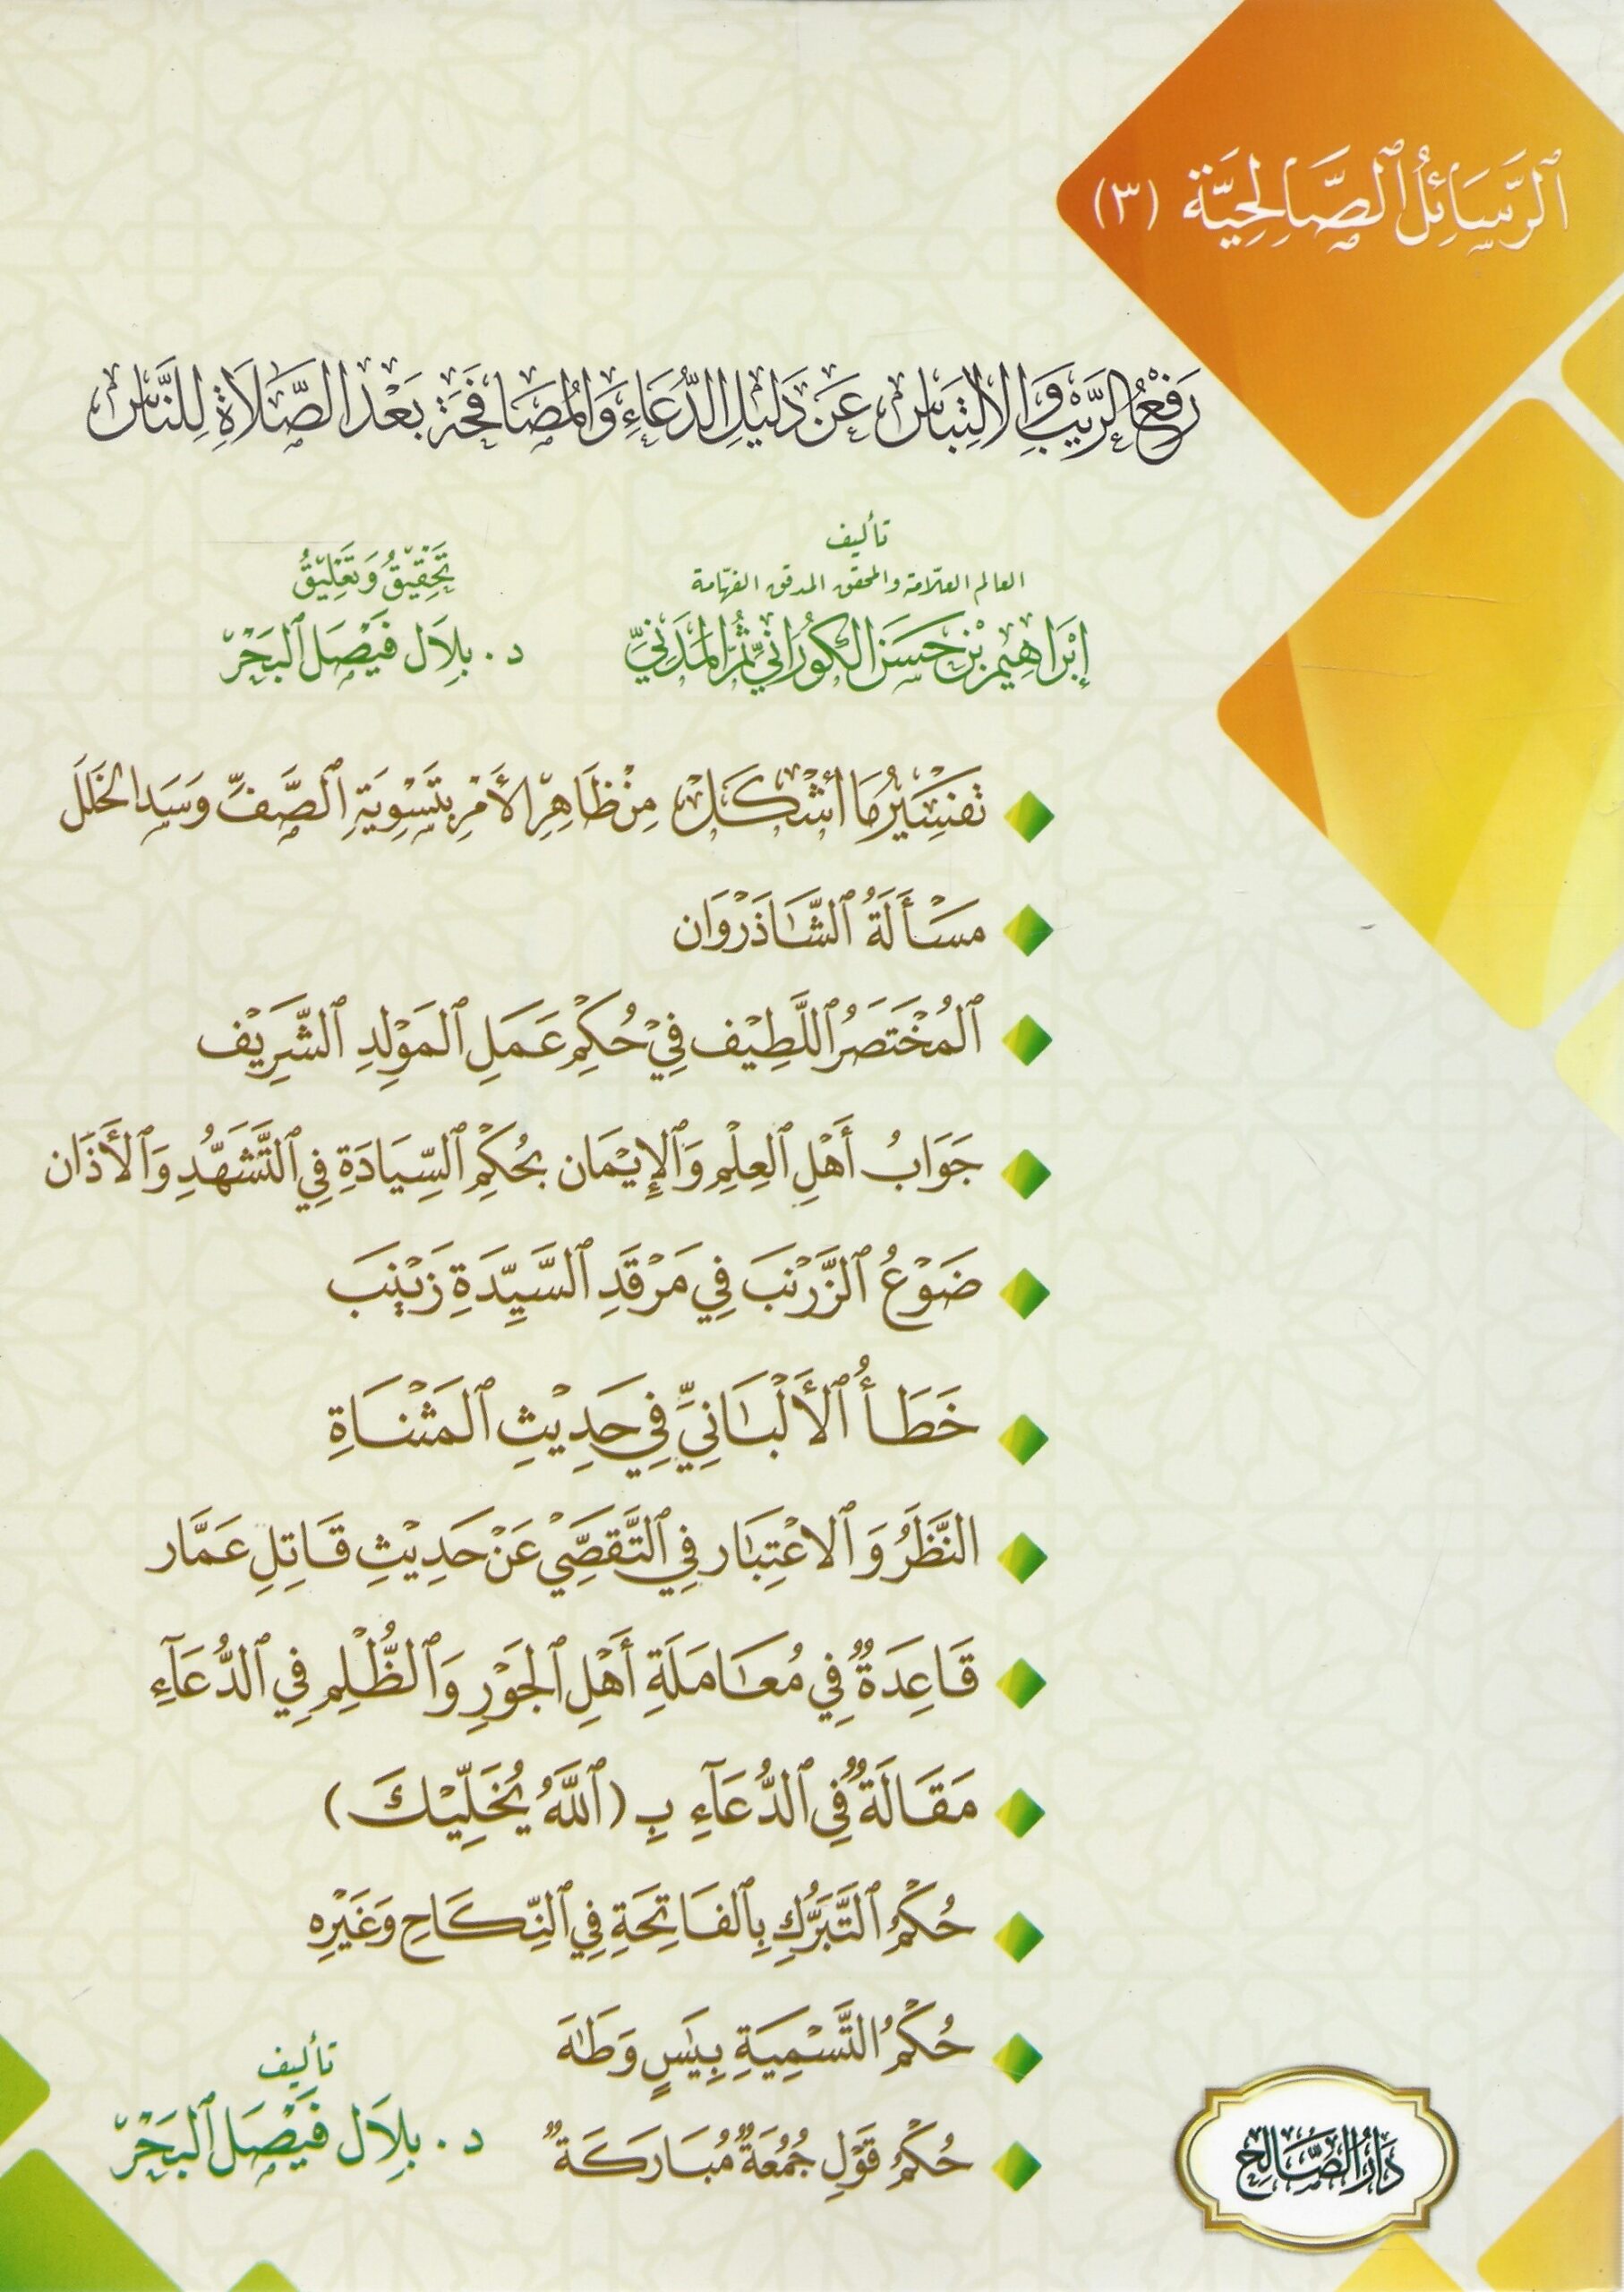 ٱلرَّسَائِلُ ٱلصَّالِحِيَّة (٣)
رَفْعُ الرَّيْبِ وَالِالْتِبَاسْ عَنْ دَلِيلِ الدُّعَاءِ وَالْمُصَافَحَةِ بَعْدَ الصَّلَاةِ لِلنَّاسْ
تأليف
العالم العلّامة والمحقق المدقق الفهّامة
إبْرَاهِيم بْن حَسَن الكُورَانِيّ ثُمَّ المَدَنِيّ
تَحْقِيْقُ وَتَعْلِيْقُ
د. بِلَال فَيْصَل ٱلبَحْرْ
تَفْسِيْرُ مَا أَشْكَلْ مِنْ ظَاهِرِ الأَمْرِ بِتَسْوِيَةِ ٱلصَّفِّ وَسَدِ الخَلَلَ
مَسْأَلَةُ ٱلشَّاذَرْوَان
ٱلمُخْتَصَرُ ٱللَّطِيْف فِيْ حُكِمْ عَمَلِ ٱلمَوْلِدِ ٱلشَّرِيْف
جَوَابُ أَهْلِ ٱلعِلْمِ وَٱلإِيْمَان بِحُكِمْ ٱلسِّيَادَةِ فِي ٱلتَّشَهُّدِ وَٱلأَذَان
ضَوْعُ ٱلزَّرْنَبَ فِي مَرْقَدِ ٱلسَّيِّدَةِ زَيْنَبَ
خَطَأُ ٱلأَلْبَانِيِّ فِي حَدِيْثِ ٱلمَثْنَاةِ
النَّظَرُ وَٱلاعْتِبَار فِي ٱلتَّقَصِّيْ عَنْ حَدِيْثِ قَاتِلِ عَمَّار
قَاعِدَةٌ فِي مُعَامَلَةِ أَهْلِ ٱلجَوْرِ وَٱلظُّلْمِ فِي ٱلدُّعَآءِ
مَقَالَةٌ فِي ٱلدُّعَآءِ بِ (ٱللَّهُ يُخَلِّيْكَ)
حُكْمُ ٱلتَّبَرُّكِ بِٱلفَاتِحَةِ فِي ٱلنِّكَاحِ وَغَيْرِهِ
حُكْمُ التَّسْمِيَةِ بِيَسٍ وَطَهَ
حُكْمُ قَوْلِ جُمُعَةٌ مُبَارَكَةٌ
تأليف
د. بِلَال فَيْصَل ٱلبَحْرْ
دَارُ الصَّالِح